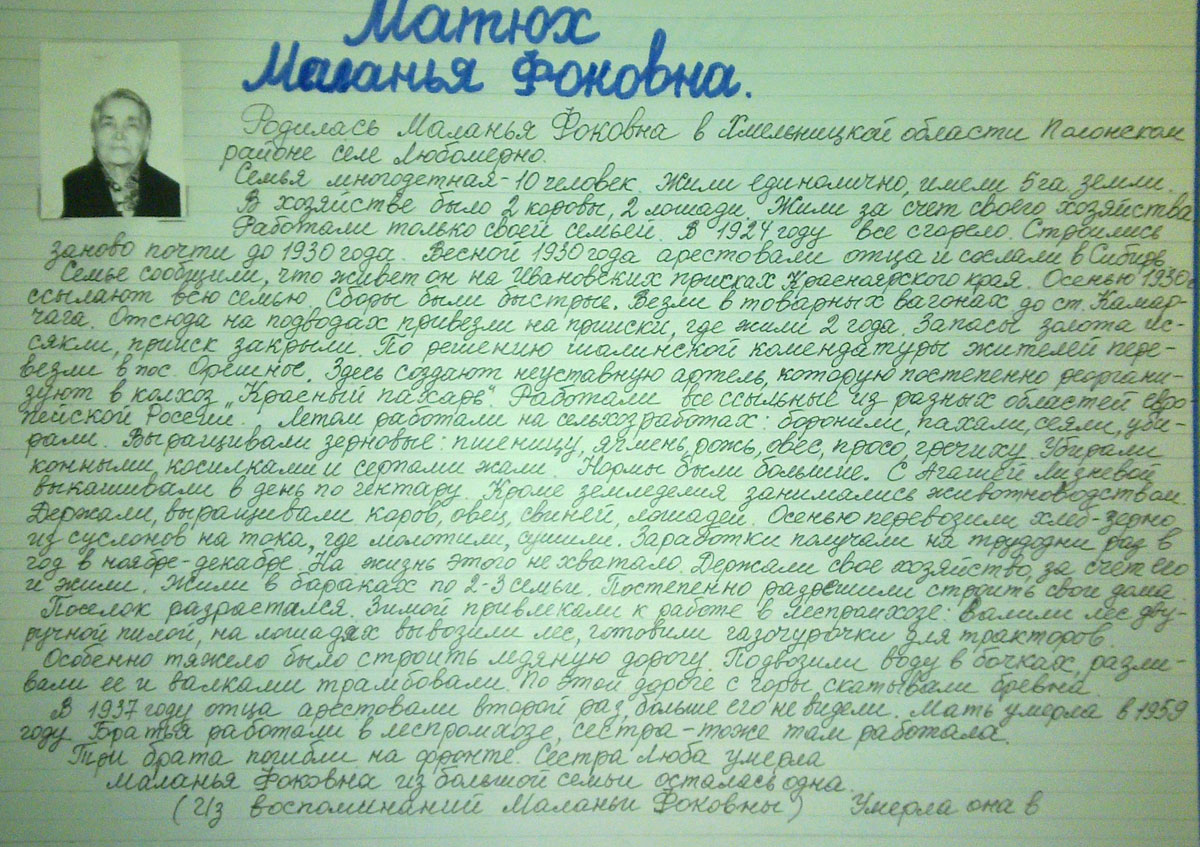 Матюх
Маланья Фоковна.
Родилась Маланья Фоковна в Хмельницкой области Полонском
районе селе Любомерно.
Семья многодетная - 10 человек. Жили единолично, имели 5 га земли.
В хозяйстве было 2 коровы, 2 лошади. Жили за счет своего хозяйства
Работали только своей семьей. В 1924 году все сгорело. Строились
заново почти до 1930 года. Весной 1930 года арестовали отца и сослали в Сибирь
Семье сообщили, что живет он на Ивановских присках Красноярского края. Осенью 1930 г
ссылают всю семью. Сборы были быстрые. Везли в товарных вагонах до ст. Камар-
чага. Отсюда на подводах привезли на прииски, где жили 2 года. Запасы золота ис-
сякли, прииск закрыли. По решению шалинской комендатуры жителей пере-
везли в пос. Орешное. Здесь создают неуставную артель, которую постепенно реоргани-
зуют в колхоз „Красный пахарь". Работали все ссыльные из разных областей евро-
пейской России. Летом работали на сельхозработах: боронили, пахали, сеяли, уби-
рали. Выращивали зерновые: пшеницу, ячмень, рожь, овес, просо, гречиху. Убирали
конными косилками и серпами жали. Нормы были большие. С Агашей Лизневой
выкашивали в день по гектару. Кроме земледелия занимались животноводством
Держали, выращивали коров, овец, свиней, лошадей. Осенью перевозили хлеб-зерно
из суслонов на тока, где молотили, сушили. Заработки получали на трудодни раз в
год в ноябре-декабре. На жизнь этого не хватало. Держали свое хозяйство, за счет его
и жили. Жили в бараках по 2-3 семьи. Постепенно разрешили строить свои дома
Поселок разрастался. Зимой привлекали к работе в леспромхозе: валили лес дву-
ручной пилой, на лошадях вывозили лес, готовили газочурочки для тракторов.
Особенно тяжело было строить ледяную дорогу. Подвозили воду в бочках, разли-
вали ее и валками трамбовали. По этой дороге с горы скатывали бревна.
В 1937 году отца арестовали второй раз, больше его не видели. Мать умерла в 1959
году. Братья работали в леспромхозе, сестра - тоже там работала.
Три брата погибли на фронте. Сестра Люба умерла
Маланья Фоковна из большой семьи осталась одна.
(Из воспоминаний Маланьи Фоковны) Умерла она в